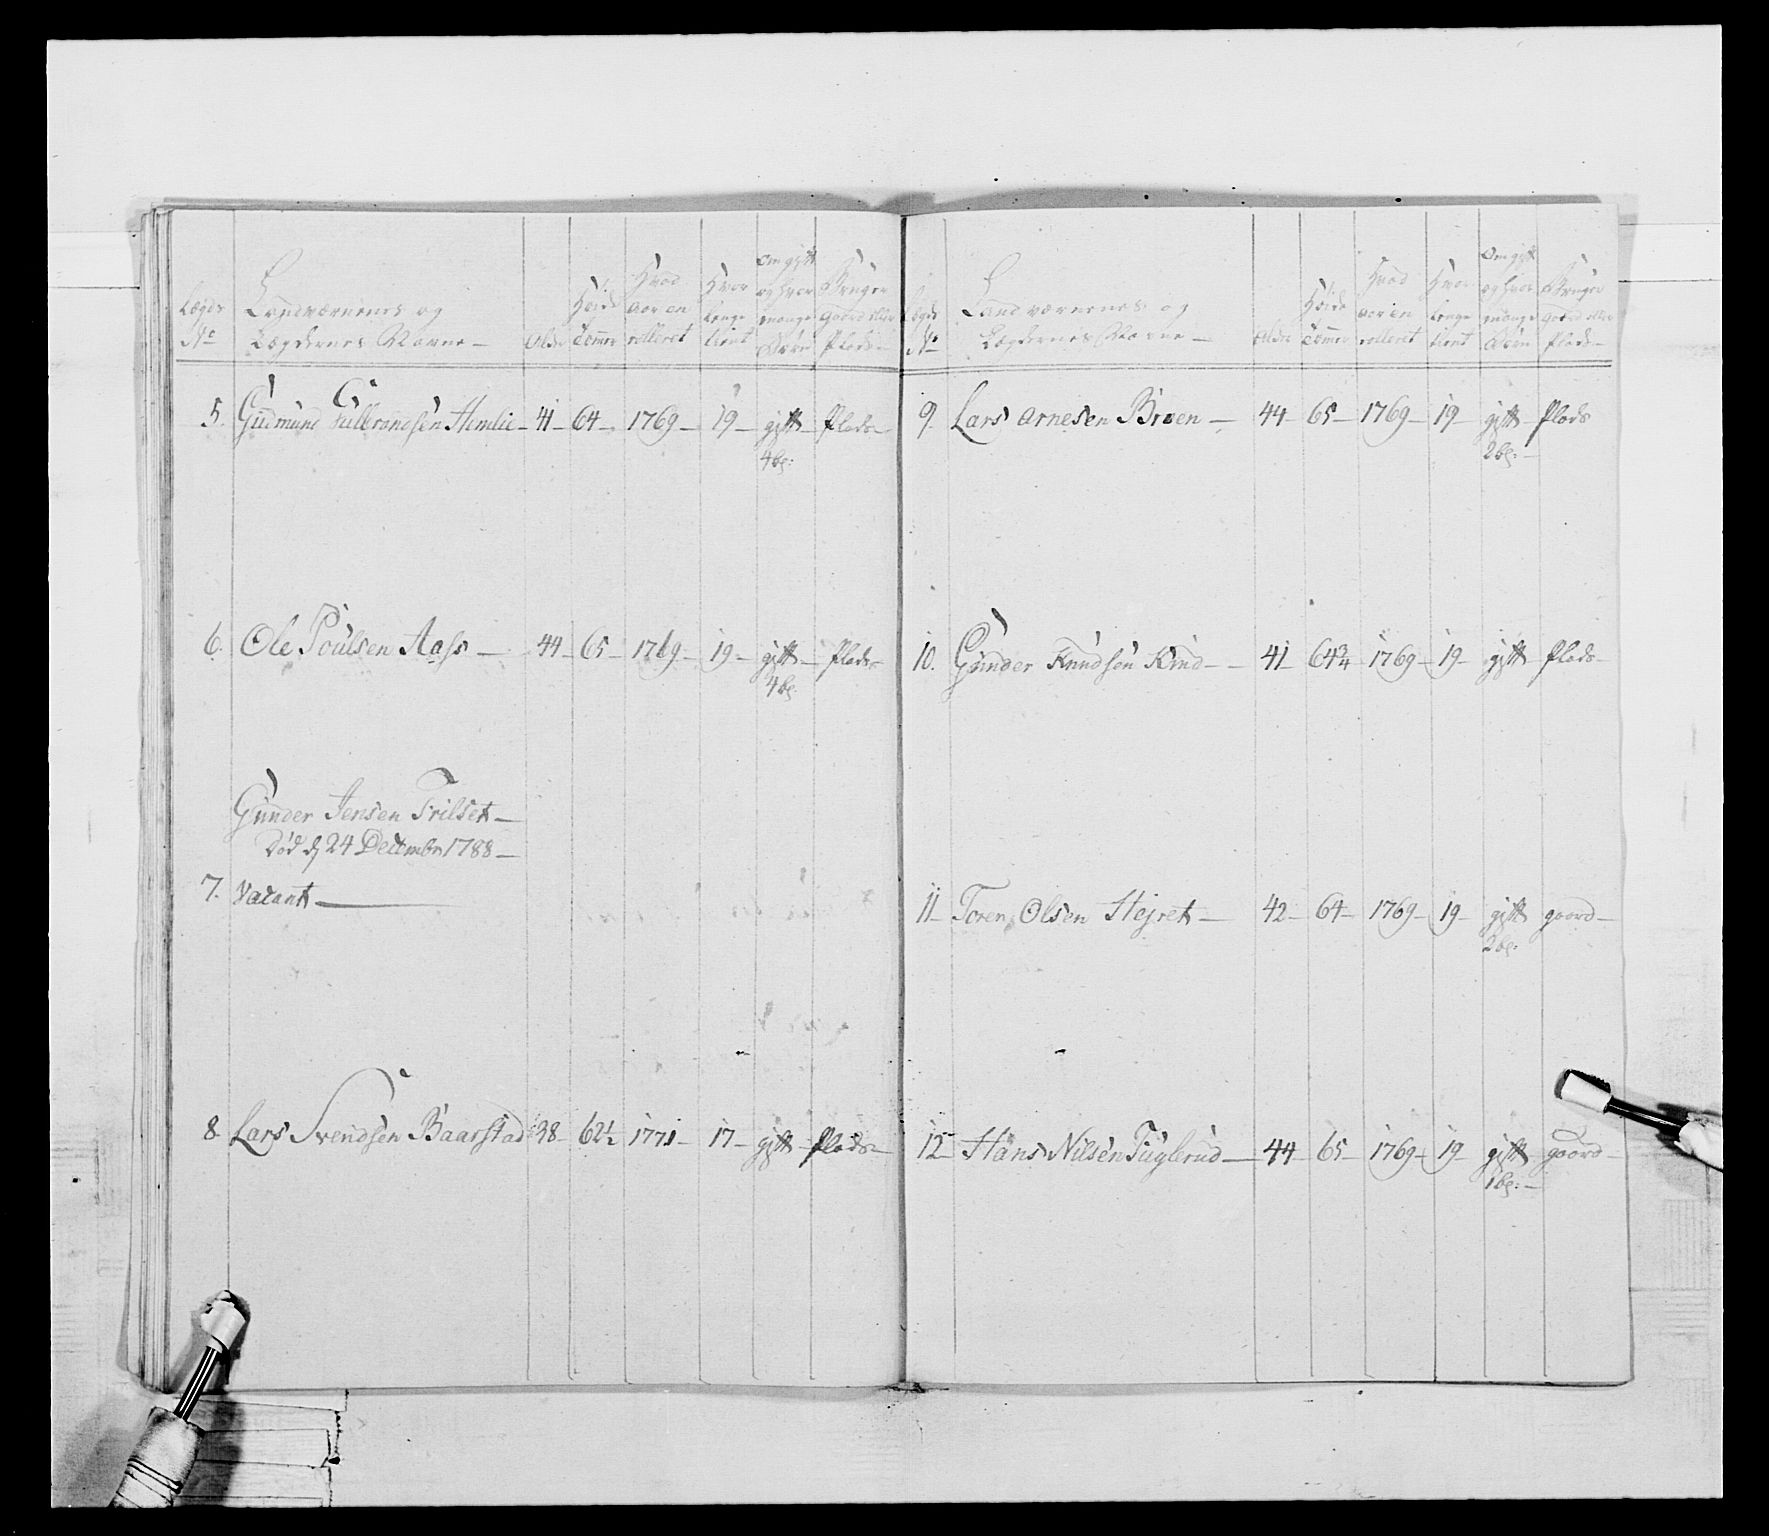 Lægds No
Landværnenes og Lægdernes Navne —
Alder
Høide Tomer
Hvad aar en rolleret
Hvor lenge tient
Om gift og hvor mange Børn
Bruger Gaard eller Plads —
5. Gudmund Gulbrandsen Hemlie — 41 — 64 — 1769 — 19 — gift — Plads —
4 bø:
6. Ole Poulsen Aass — 44 — 65 — 1769 — 19 — gift — Plads —
4 bø:
Gunder Jensen Trilset —
død d 24 Decembr 1788 —
7. Vacant —
8. Lars Svendsen Baarstad 38 — 62½ 1771 — 17 — gift — Plads —
Lægds No
Landværnenes og Lægdernes Navne —
Alder
Høide Tomer
Hvad aar en rolleret
Hvor lenge tient
Om gift og hvor mange Børn
Bruger Gaard eller Plads —
9. Lars Arnesen Broen — 44 — 65 — 1769 — 19 — gift — Plads
2 bø: —
10. Gunder Knudsen Rud — 41 64¾ 1769 — 19 — gift Plads —
11 — Toren Olsen Stejret — 42 — 64 — 1769 — 19 — gift gaard —
2 bø:
12 — Hans Nilsen Fuglerud — 44 — 65 — 1769 — 19 — gift gaard —
1 bø: —